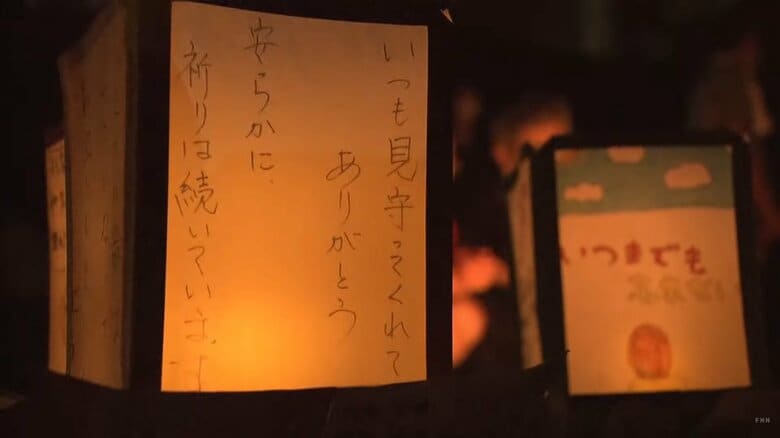 いつも見守ってくれて
ありがとう
安らかに、
祈りは続いています
いつまでも
FNN